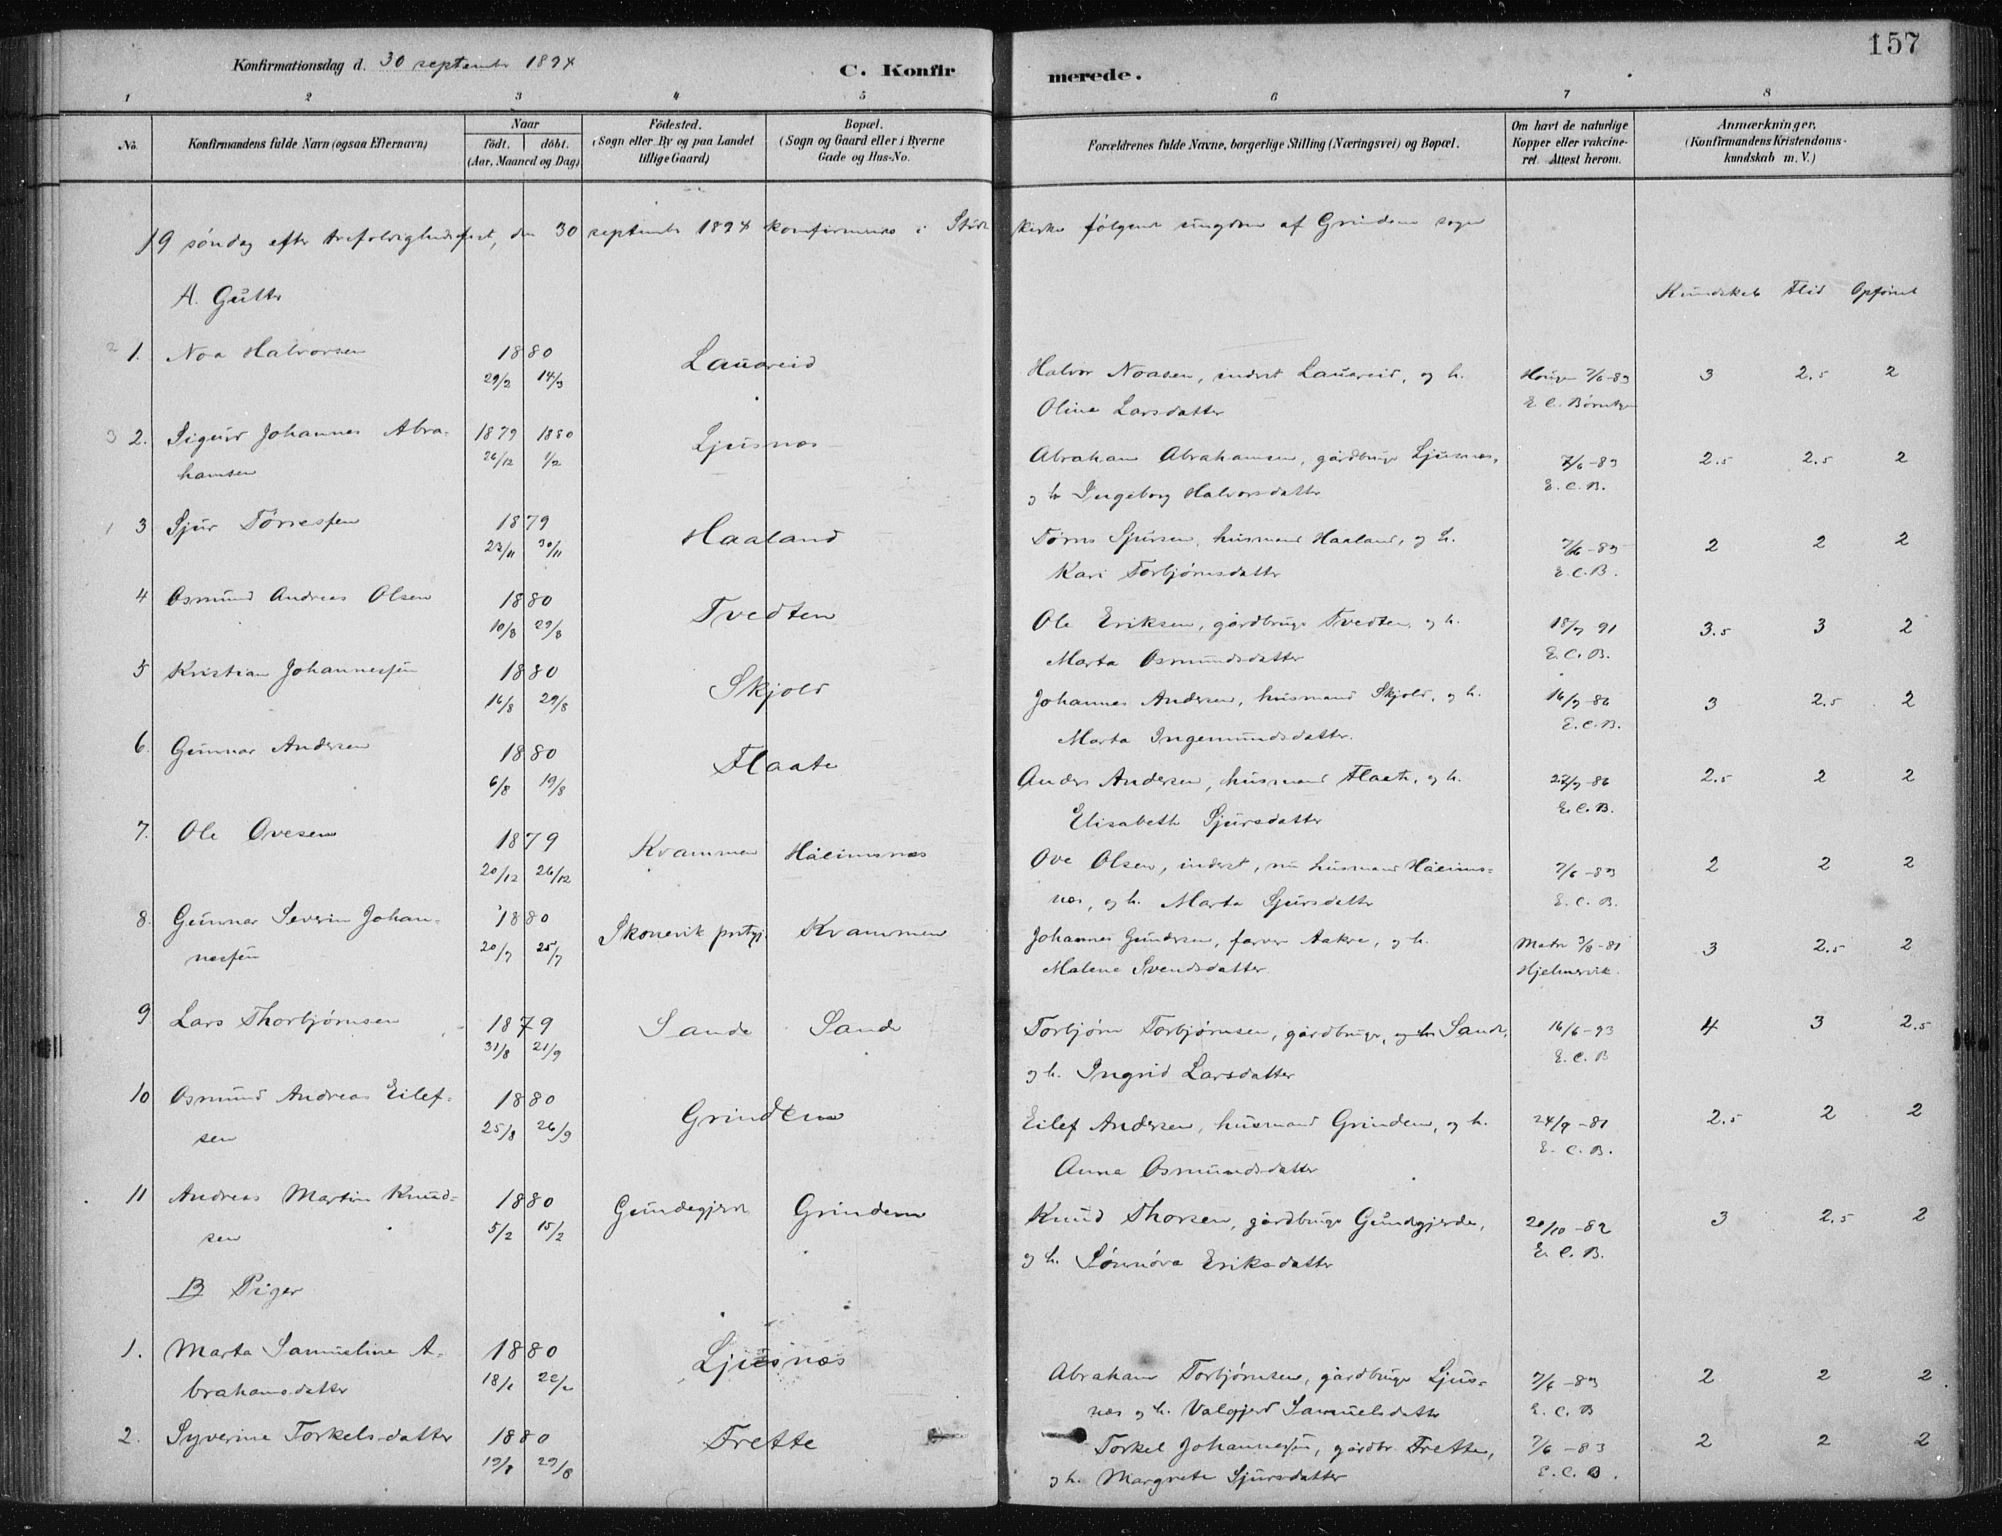 157
Konfirmationsdag d. 30 septembr 1894
C. Konfirmerede.
1 2 3 4 5 6 7 8
No.
Konfirmandens fulde Navn (ogsaa Efternavn)
Naar
födt. döbt.
(Aar, Maaned og Dag)
Födested.
(Sogn eller By og paa Landet
tillige Gaard)
Bopæl.
(Sogn og Gaard eller i Byerne
Gade og Hus-No.
Forældrenes fulde Navne, borgerlige Stilling (Næringsvei) og Bopæl.
Om havt de naturlige
Kopper eller vakcine-
ret. Attest herom.
Anmærkninger.
(Konfirmandens Kristendoms-
kundskab m. V.)
19 søndag efter trefoldighedsfest, den 30 septembr 1894 konfirmeres i kirke følgende ungdom af Grindem sogn
A. Gutter
Kundskab Flid Opførsel
2 1. Noa Halvorsen 1880 29/2 14/3 Lauareid Halvor Noasen, inderst Lauareid, og h. Oline Larsdatter 7/6-83 E. C. Børntzen 3 2.5 2
3 2. Sigurd Johannes Abra-
hamsen 1879 26/12 1880 1/2 Ljusnæs Abraham Abrahamsen, gårdbruger Ljusnæs, og h Ingeborg Halvorsdatter 7/6-83 E. C. B. 2.5 2.5 2
1 3 Sjur Tørressen 1879 23/11 30/11 Haaland Tørres Sjursen, husmand Haaland, og h. Kari Torbjørnsdatter 7/6-83 E. C. B. 2 2 2
4 Osmund Andreas Olsen 1880 10/8 29/8 Tvedten Ole Eriksen, gårdbruger Tvedten, og h. Marta Osmundsdatter 18/9 91 E. C. B. 3.5 3 2
5 Kristian Johannessen 1880 16/8 29/8 Skjold Johannes Andersen, husmand Skjold, og h. Marta Ingemundsdatter. 16/9-86 E. C. B. 3 2.5 2
6. Gunnar Andersen 1880 6/8 19/8 Flaate Anders Andersen, husmand Flaate, og h. Elisabeth Sjursdatter 27/9-86 E. C. B. 2.5 2 2
7. Ole Ovesen 1879 20/12 26/12 Krammen Håeimsnæs Ove Olsen, inderst, nu husmand Håeims-
næs, og h. Marta Sjursdatter 7/6-83 E. C. B. 2 2 2
8. Gunnar Severin Johan-
nessen 1880 20/7 25/7 Skonevik prstgj. Krammen Johannes Gundersen, farver Aakre, og h. Malene Svendsdatter 3/8-81 Hjelmervik. 3 2.5 2
9 Lars Thorbjørnsen 1879 31/8 21/9 Sande Sande Torbjørn Torbjørnsen, gårdbruger, Sande, og h. Ingrid Larsdatter 16/6-93 E. C. B 4 3 2.5
10 Osmund Andreas Eilef-
sen 1880 25/8 26/9 Grindem Eilef Andersen, husmand Grindem, og h. Anna Osmundsdatter 24/9-81 E. C. B. 2.5 2 2
11 Andreas Martin Knud-
sen 1880 5/2 15/2 Gundegjerde Grindem Knud Thorsen, gårdbruger Gundegjerde, og h. Sønnøva Eriksdatter 20/10-82 E. C. B. 3 2.5 2
B Piger
1. Marta Samueline A-
brahamsdatter 1880 18/1 22/2 Ljusnæs Abraham Torbjørnsen, gårdbruger Ljus-
næs og h. Valgjerd Samuelsdatter 7/6-83 E. C. B 2 2 2
2. Syverine Torkelsdatter 1880 19/8 29/8 Frette Torkel Johannessen, gårdbr. Frette, og h. Margrete Sjursdatter 7/6-83 E. C. B. 2 2 2